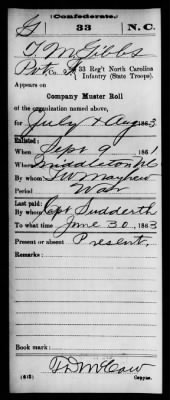 (Confederate.)
G 33 N.C.
T. M. Gibbs
Pvt, Co. 33 Reg't North Carolina
Infantry (State Troops).
Appears on
Company Muster Roll
of the organization named above,
for July & Aug, 1863
Enlisted:
When Sept 9, 1861
Where Middleton NC
By whom Mayhew
Period War
Last paid:
By whom Capt Sudderth
To what time June 30, 1863
Present or absent Present.
Remarks:
Book mark:
(642)
Copyist.